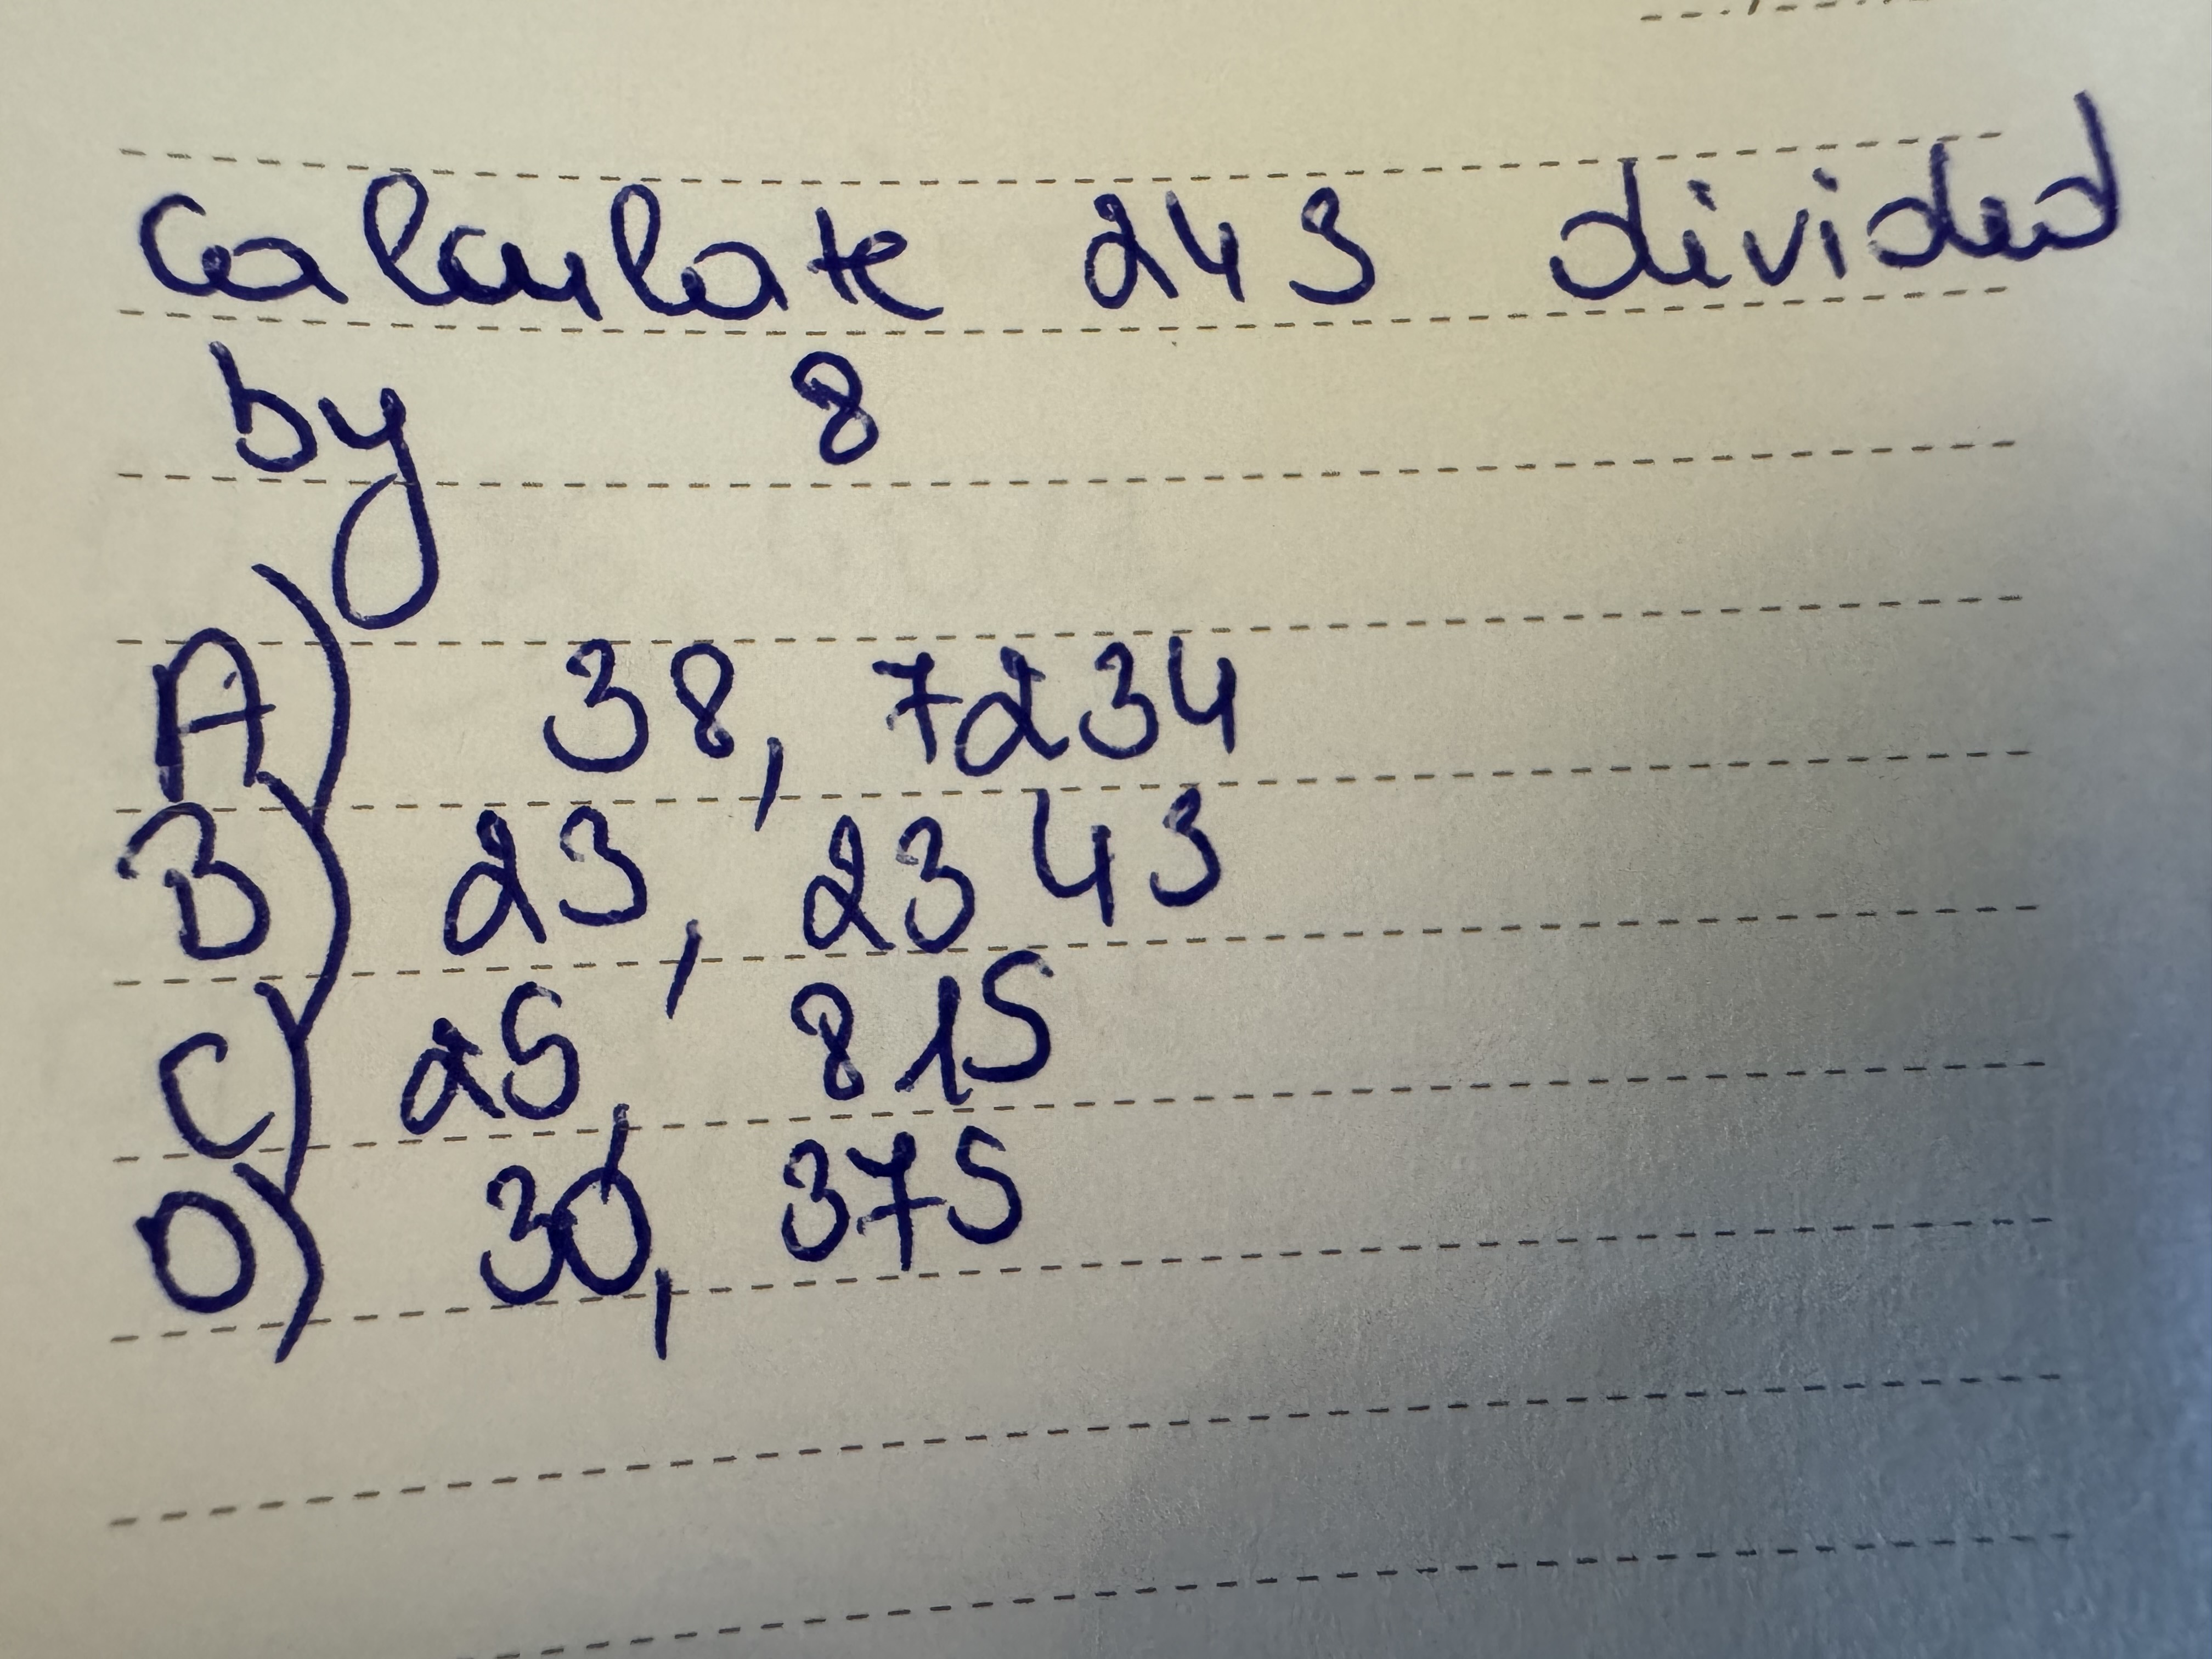 calculate 243 divided
by 8
A) 38, 7234
B) 23, 2343
C) 25, 815
D) 30, 375